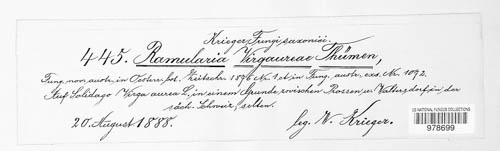 Krieger, Fungi saxonici.
445. Ramularia Virgaureae Thümen,
Fung. nov. austr. in Oesterr. bot. Zeitschr. 1876 No. 1 et in Fung. austr. exs. No. 1072.
Auf Solidago Virga aurea L., in einem Grunde zwischen Rossen u. Waltersdorf in der
sächs. Schweiz, selten.
20. August 1888.
leg. W. Krieger.
US NATIONAL FUNGUS COLLECTIONS
978699